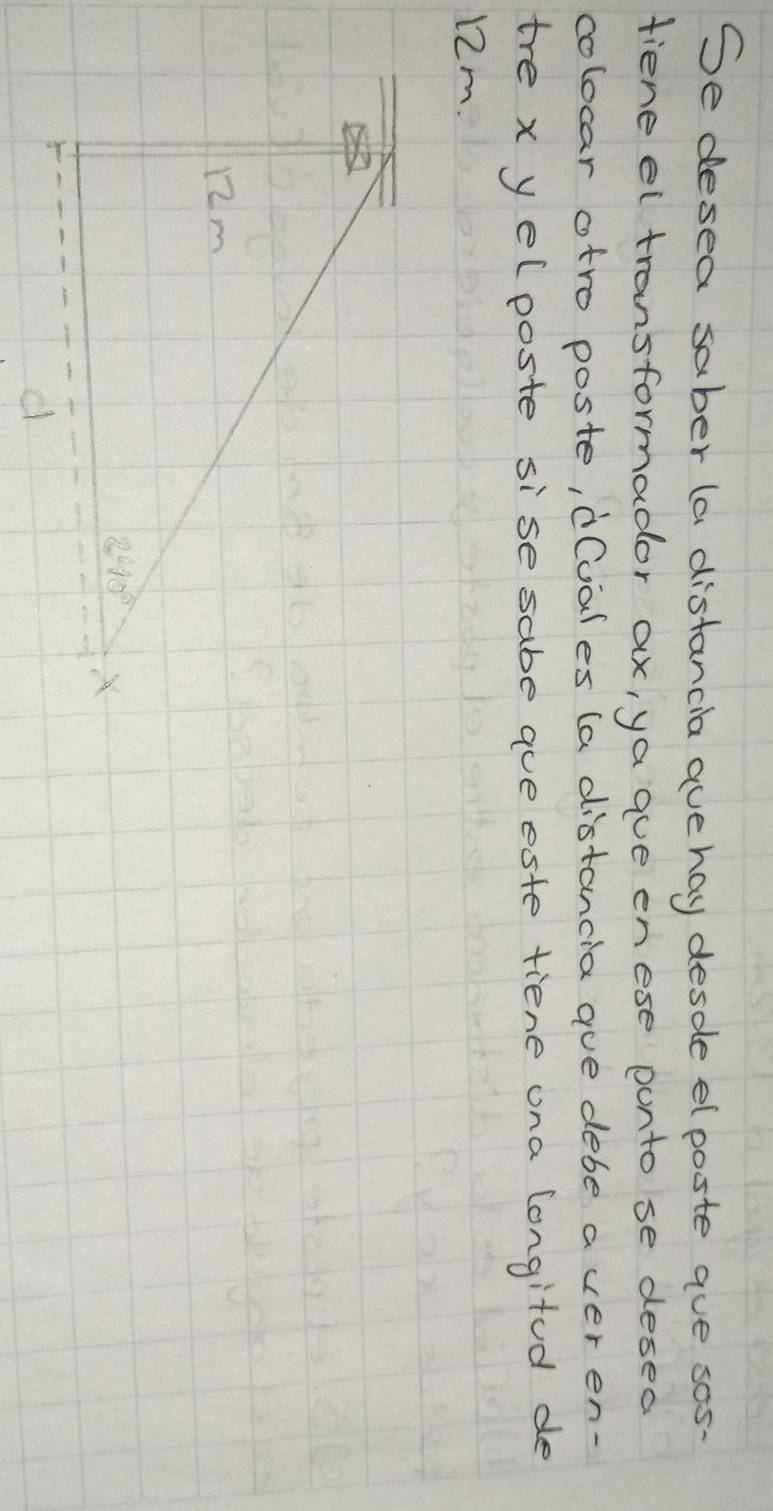 Se desea saber la distancia que hay desde el poste que sos-
tiene el transformador ax, ya que en ese punto se desea
colocar otro poste, ¿Cuál es la distancia que debe a ver en-
tre x y el poste si se sabe que este tiene una longitud de
12m.
12m
x
d